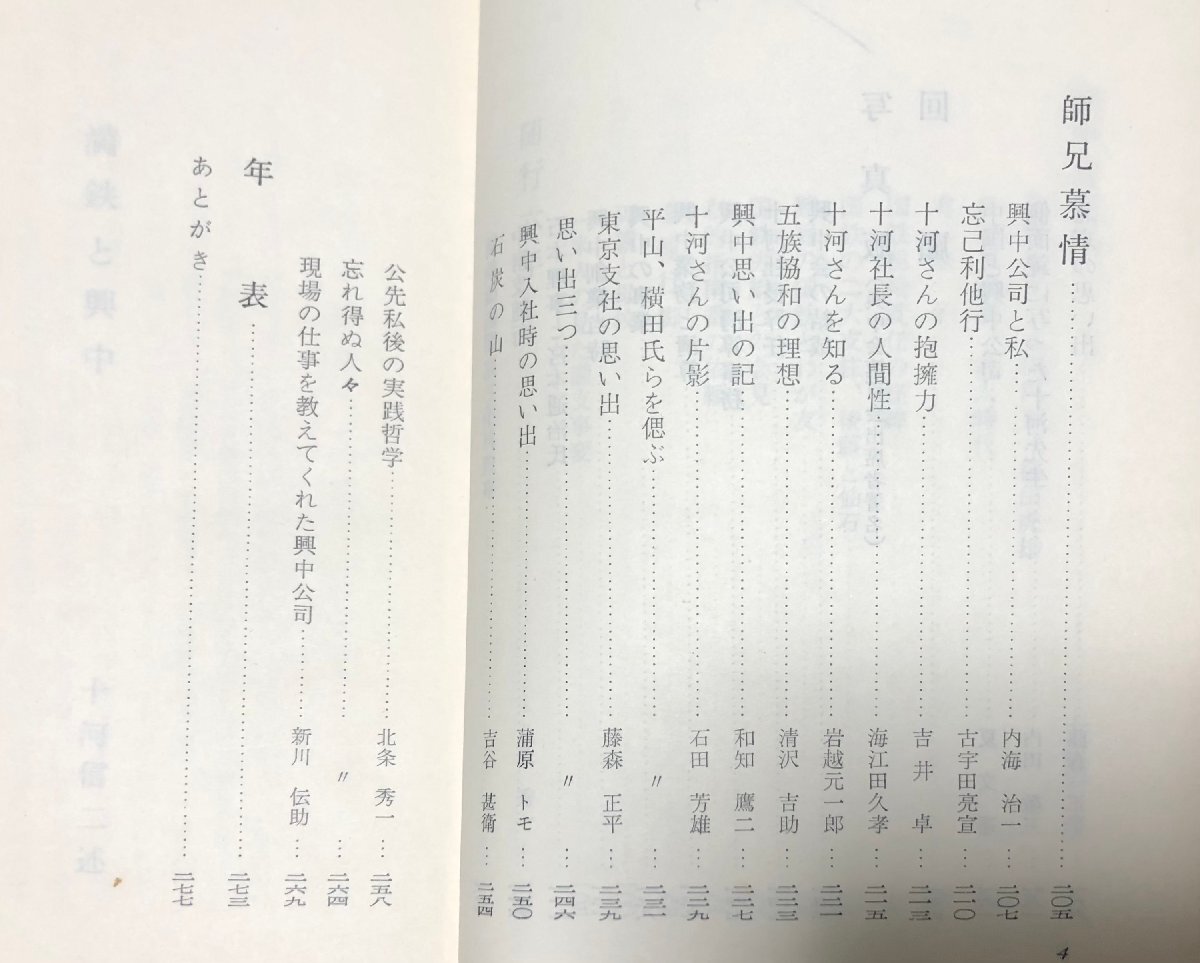 師兄慕情……二〇五
興中公司と私……内海 治一…二〇七
忘己利他行……古宇田亮宣…二一〇
十河さんの抱擁力……吉井 卓…二一三
十河社長の人間性……海江田久孝…二一五
十河さんを知る……岩越元一郎…二二一
五族協和の理想……清沢 吉助…二二三
興中思い出の記……和知 鷹二…二二七
十河さんの片影……石田 芳雄…二二九
平山、横田氏らを偲ぶ……〃…二三一
東京支社の思い出……藤森 正平…二三九
思い出三つ……〃…二四六
興中入社時の思い出……蒲原 トモ…二五〇
石炭の山……吉谷 甚衛…二五四
4
公先私後の実践哲学……北条 秀一…二五八
忘れ得ぬ人々……〃…二六四
現場の仕事を教えてくれた興中公司……新川 伝助…二六九
年表……二七三
あとがき……二七七